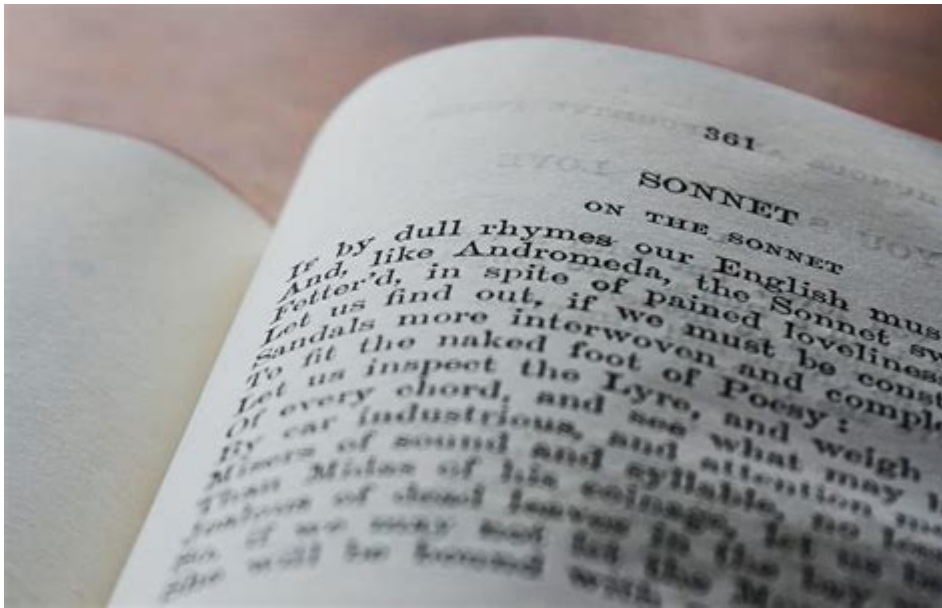 361
SONNET
ON THE SONNET
If by dull rhymes our English mus
And, like Andromeda, the Sonnet sw
Fetter'd, in spite of pained lovelines
Let us find out, if we must be const
Sandals more interwoven and comple
To fit the naked foot of Poesy:
Let us inspect the Lyre, and weigh
Of every chord, and see what may
By ear industrious, and attention m
Misers of sound and syllable, no less
Than Midas of his coinage, let us be
Jealous of dead leaves in the bay
So, if we may not let the M
She will be bound with